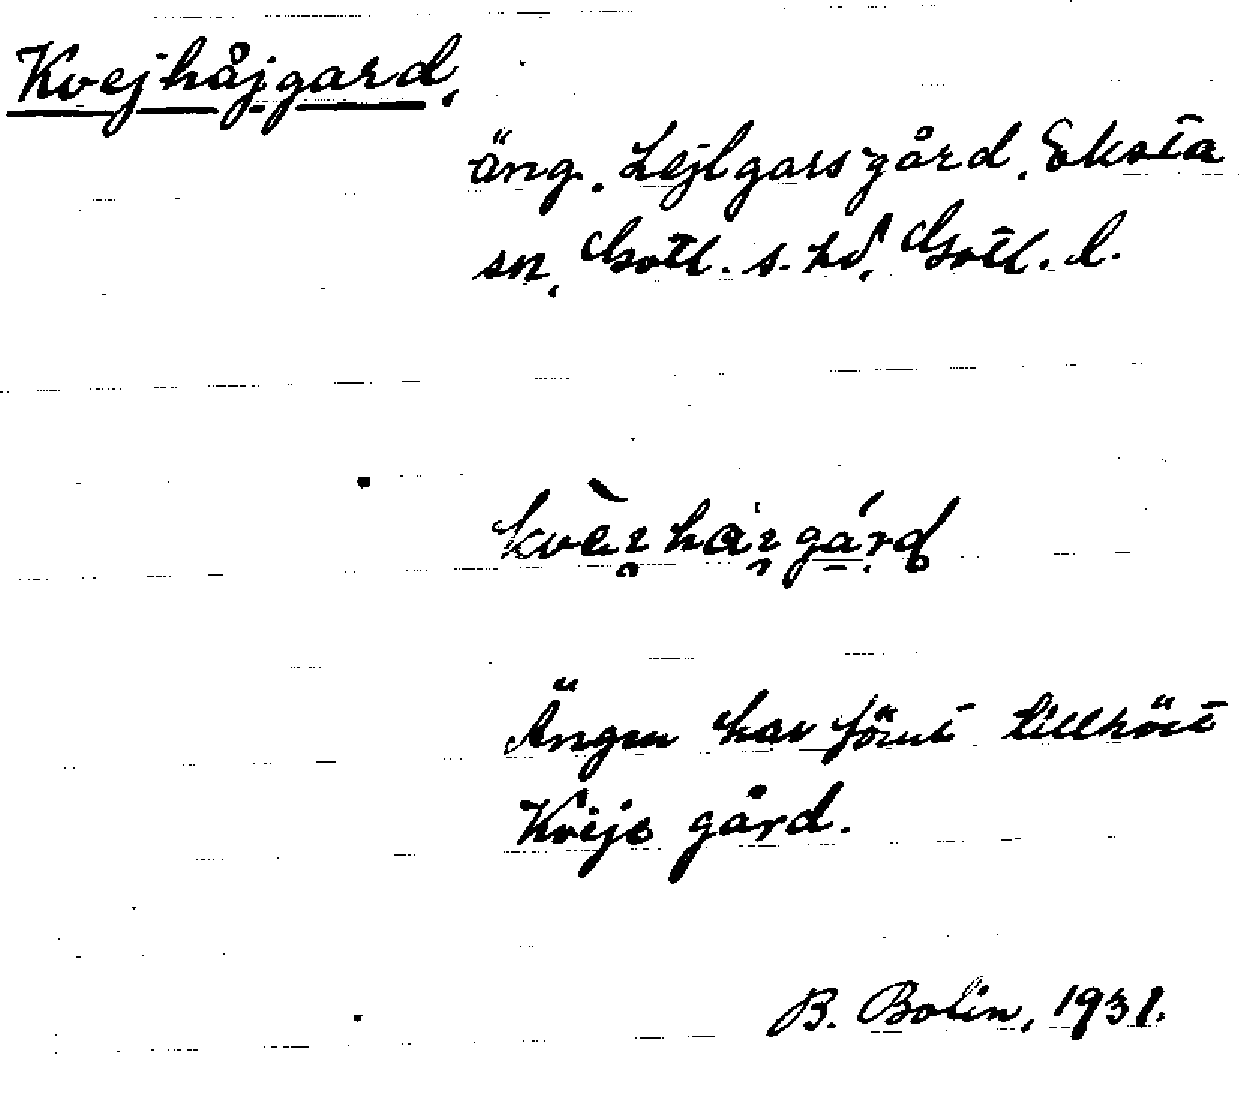 Kvejhåjgard,
äng. Lejlgars gård, Eksta
sn, Gotl. s. hd, Gotl. l.
Ängen har förut tillhört
Kvije gård.
B. Bolin, 1931.